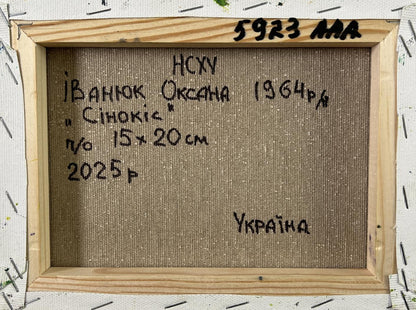 5923 ААА
НСХУ
ІВАНЮК ОКСАНА 1964р/н
„Сінокіс"
п/о 15х20см
2025р
УКРАЇНА